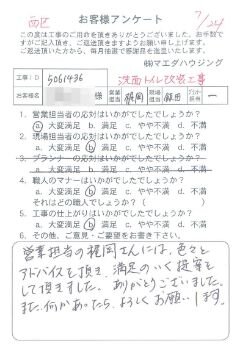 西区
お客様アンケート
7/24
この度は工事のご用命を頂きありがとうございました。お手数で
すがご記入頂き、ご返送頂きますようお願い申し上げます。
ご返送頂いた方から、毎月抽選で感謝品を進呈いたします。
㈱マエダハウジング
工事ID 5061436 洗面トイレ改装工事
お客様名 様 営業担当 福岡 現場担当 飯田 プランナー担当 ー
1. 営業担当者の応対はいかがでしたでしょうか?
a 大変満足 b 満足 c やや不満 d 不満
2. 現場担当者の応対はいかがでしたでしょうか?
a 大変満足 b 満足 c やや不満 d 不満
3. プランナーの応対はいかがでしたでしょうか?
a 大変満足 b 満足 c やや不満 d 不満
4. 職人のマナーはいかがでしたでしょうか?
a 大変満足 b 満足 c やや不満 d 不満
それはどの職人でしょうか( )
5. 工事の仕上がりはいかがでしたでしょうか?
a 大変満足 b 満足 c やや不満 d 不満
6. その他、ご意見・ご要望をお書き下さい。
営業担当の福岡さんには、色々と
アドバイスも頂き、満足のいく提案を
して頂きました。ありがとうございました。
また何かあったら、よろしくお願いします。